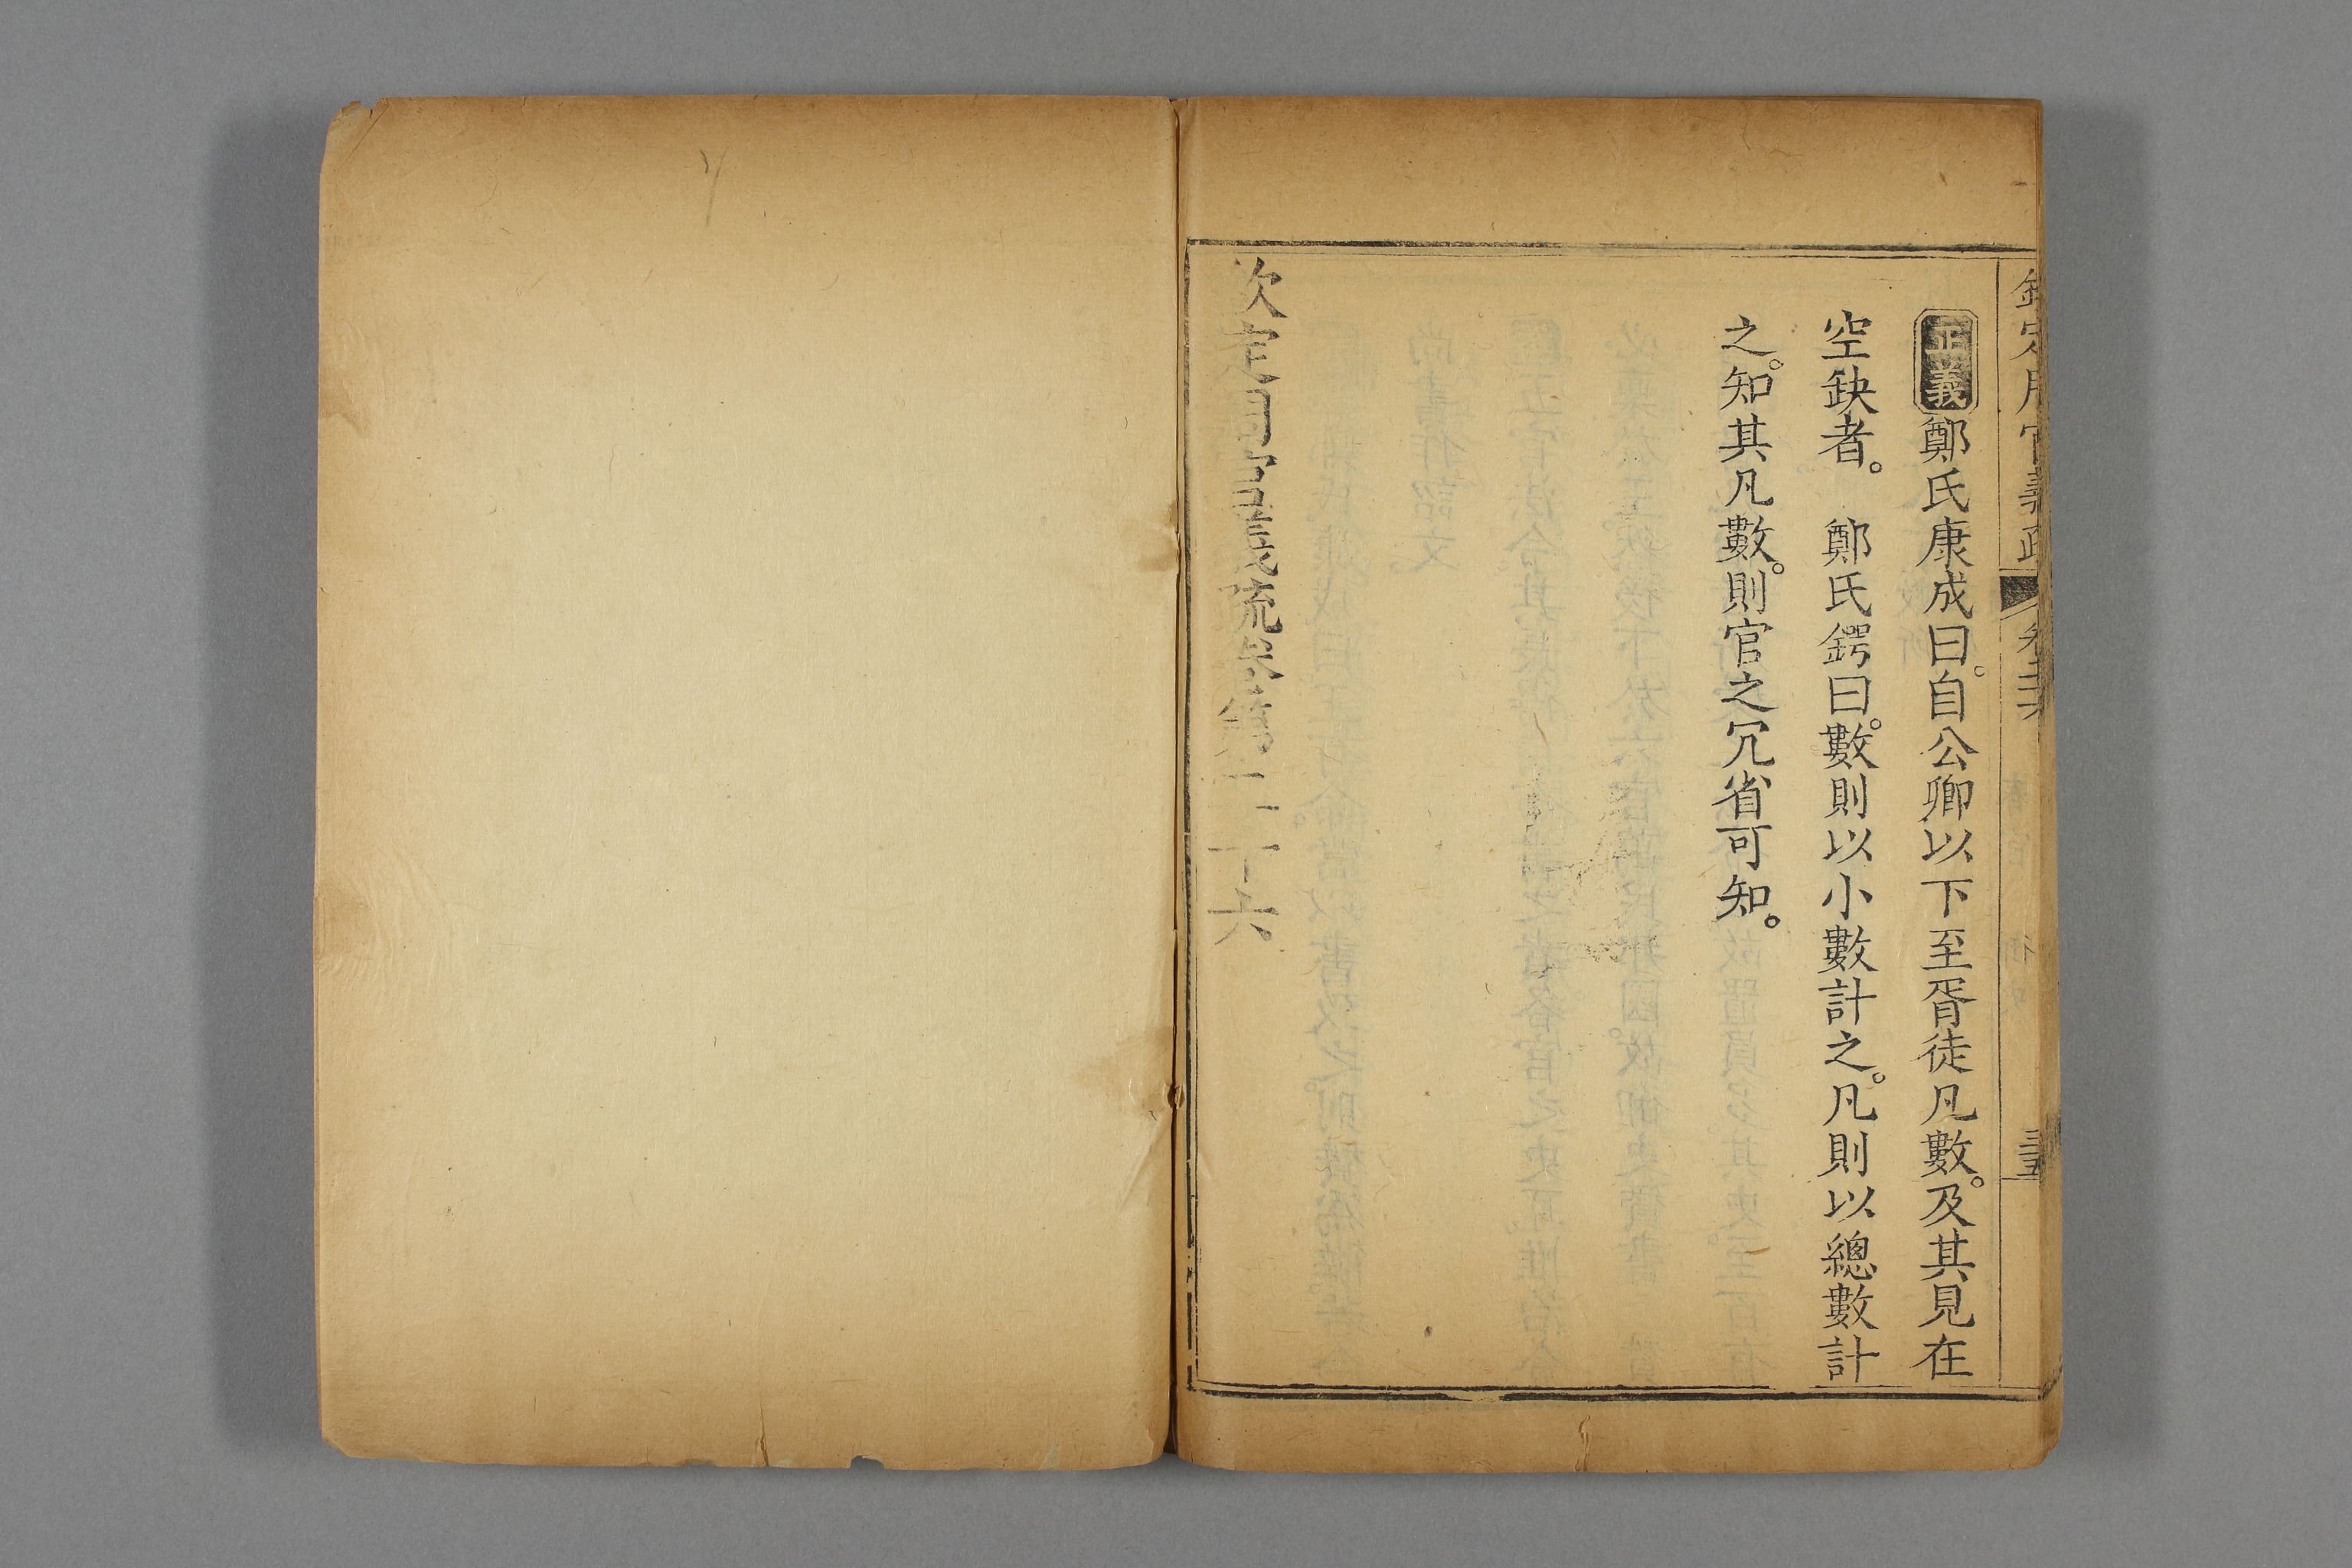 欽定周官義疏 卷二十六 三五
正義鄭氏康成曰。自公卿以下至胥徒凡數。及其見在
空缺者。 鄭氏鍔曰。數則以小數計之。凡則以總數計
之。知其凡數。則官之冗省可知。
欽定周官義疏卷第二十六